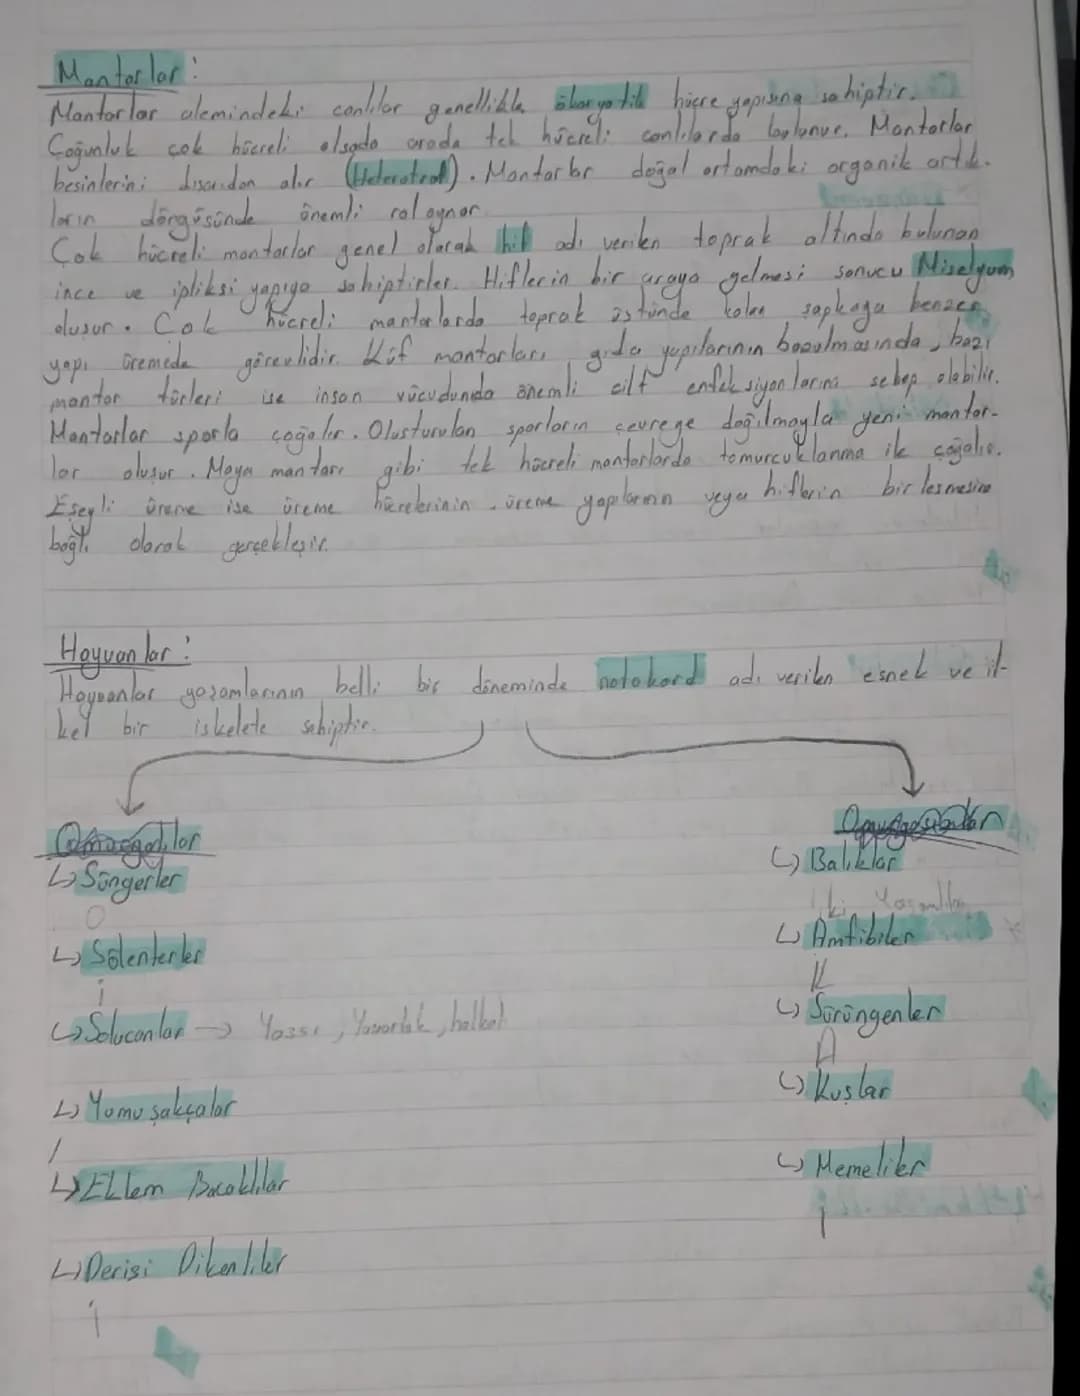 Mantarlar :
Mantarlar alemindeki canlılar genellikle ökaryotik hücre yapısına sahiptir.
Çoğunluk çok hücreli olsada arada tek hücreli canlılarda bulunur. Mantarlar
besinlerini dısarıdan alır (Heterotrof). Mantarlar doğal ortamdaki organik artık-
ların döngüsünde önemli rol oynar.
Çok hücreli mantarlar genel olarak hif adı verilen toprak altında bulunan
ince ve ipliksi yapıya sahiptirler. Hiflerin bir araya gelmesi sonucu Miselyum
olusur. Çok hücreli mantarlarda toprak üstünde kalan şapkaya benzer
yapı üremede görevlidir. Küf mantarları gıda yapılarının bozulmasında, bazı
mantar türleri ise insan vücudunda önemli cilt enfeksiyonlarına sebep olabilir.
Mantarlar sporla çoğalır. Olusturulan sporların çevreye dağılmayla yeni mantar-
lar olusur. Maya mantarı gibi tek hücreli mantarlarda tomurcuklanma ile çoğalır.
Eşeyli üreme ise üreme hücrelerinin, üreme yapılarının veya hiflerin birlesmesine
bağlı olarak gerçekleşir.
Hayvanlar :
Hayvanlar yaşamlarının belli bir döneminde notokord adı verilen esnek ve il-
kel bir iskelete sahiptir.
Omurgasızlar
Süngerler
Sölenterler
Solucanlar → Yassı, Yuvarlak, halkalı
Yumuşakçalar
Eklem Bacaklılar
Derisi Dikenliler
Balıklar
İki Yaşamlılar
Amfibiler
Sürüngenler
Kuşlar
Memeliler